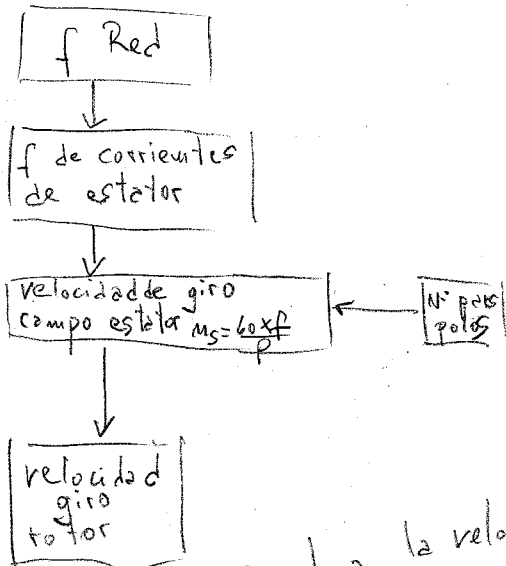 f Red
f de corrientes
de estator
velocidad de giro
campo estator ns = 60 x f / p
Nº pares
polos
velocidad
giro
rotor
la velo